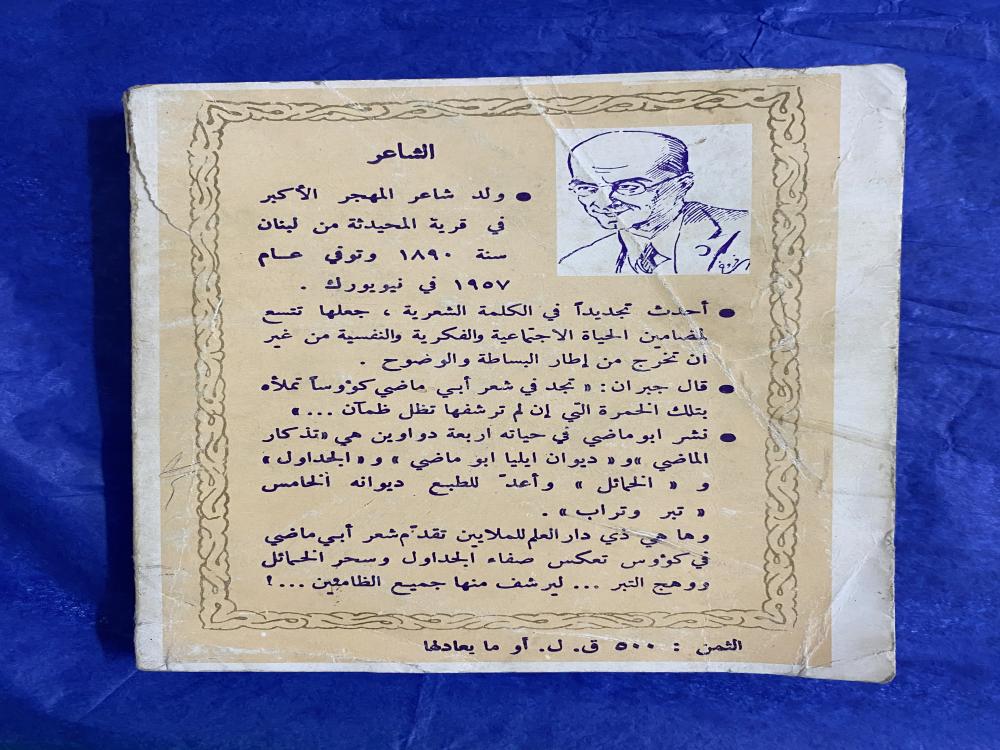 الشاعر
● ولد شاعر المهجر الأكبر
في قرية المحيدثة من لبنان
سنة ١٨٩٠ وتوفي عام
١٩٥٧ في نيويورك .
● أحدث تجديداً في الكلمة الشعرية ، جعلها تتسع
لمضامين الحياة الاجتماعية والفكرية والنفسية من غير
ان تخرج من إطار البساطة والوضوح .
● قال جبران : « تجد في شعر أبي ماضي كؤوساً تملأه
بتلك الخمرة التي إن لم ترشفها تظل ظمآن ... »
● نشر ابو ماضي في حياته اربعة دواوين هي «تذكار
الماضي » و « ديوان ايليا ابو ماضي » و « الجداول »
و « الخمائل » وأعدّ للطبع ديوانه الخامس
« تبر وتراب » .
وها هي ذي دار العلم للملايين تقدّم شعر أبي ماضي
في كؤوس تعكس صفاء الجداول وسحر الخمائل
ووهج التبر ... ليرشف منها جميع الظامئين ... !
الثمن : ٥٠٠ ق. ل. أو ما يعادلها